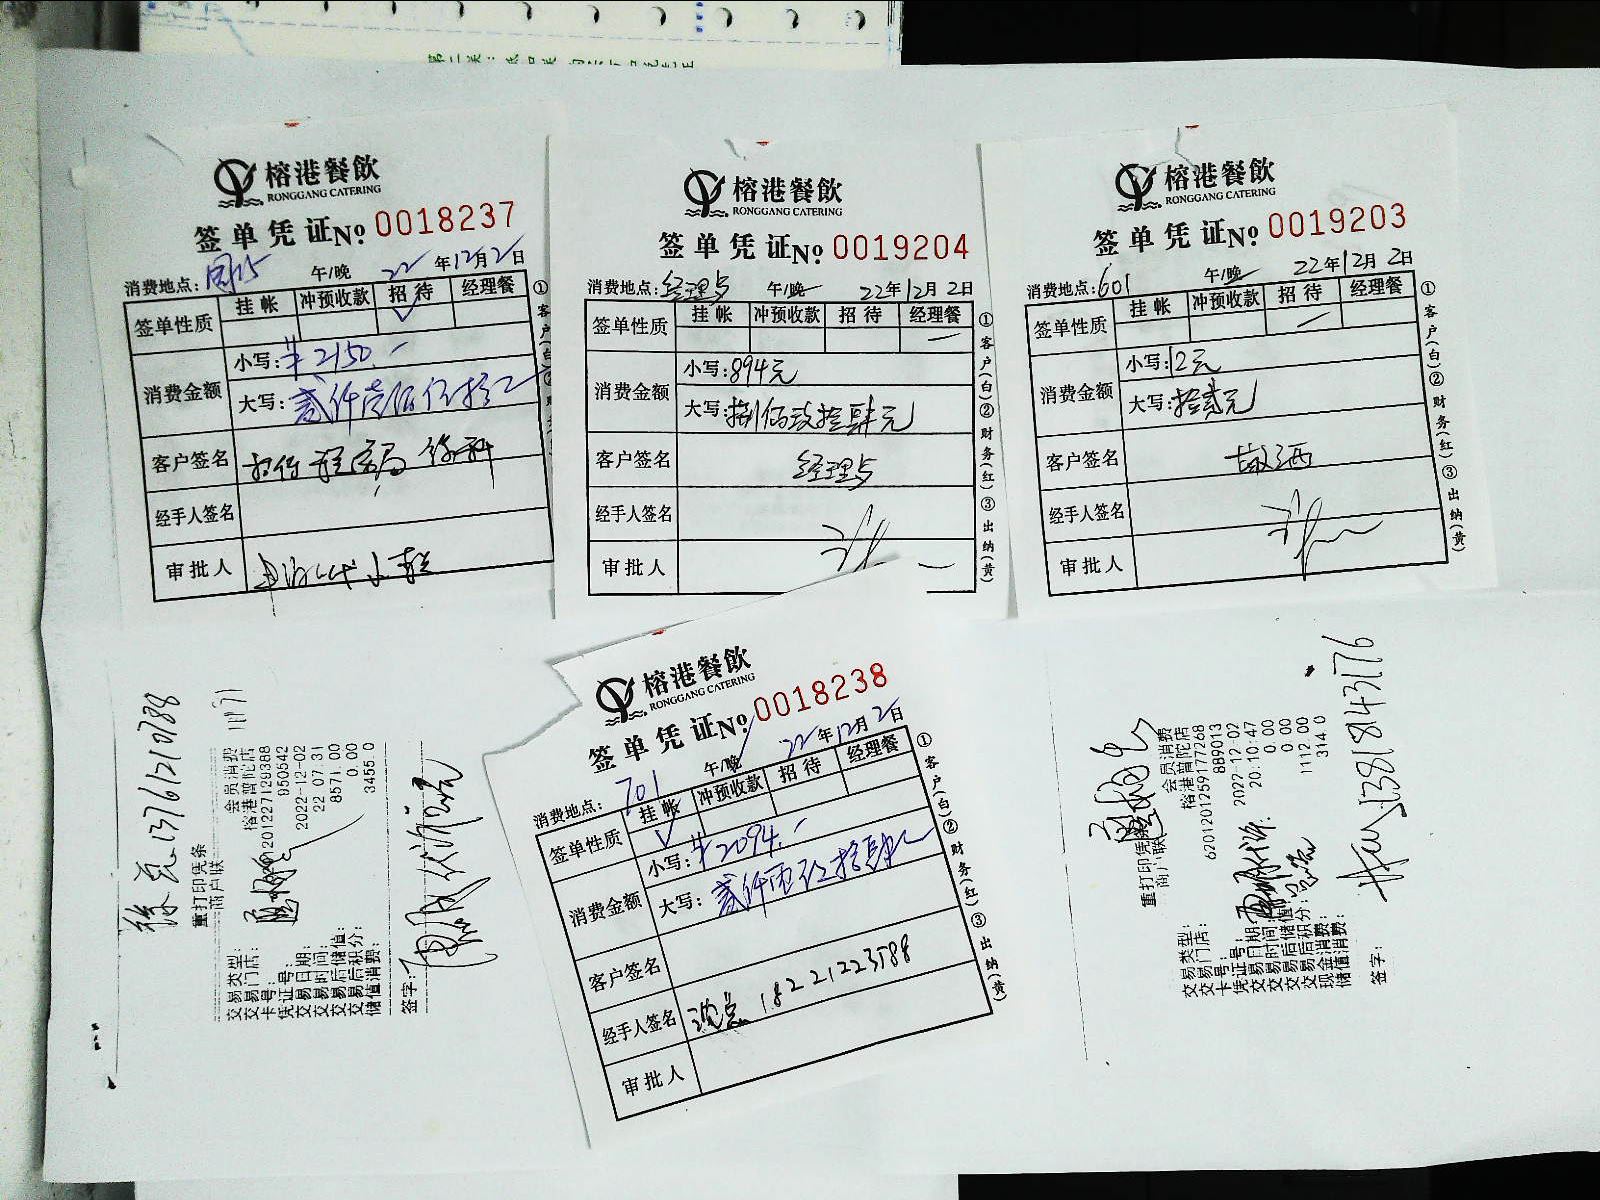 榕港餐飲
RONGGANG CATERING
签单凭证 No. 0018237
消费地点: 午/晚 22年12月2日
签单性质 挂帐 冲预收款 招待 经理餐
✓
消费金额 小写: ¥2150.-
大写: 贰仟壹佰伍拾元
客户签名
经手人签名
审批人
①客户(白)
榕港餐飲
RONGGANG CATERING
签单凭证 No. 0019204
消费地点: 经理与 午/晚 22年12月2日
签单性质 挂帐 冲预收款 招待 经理餐
消费金额 小写: 894元
大写: 捌佰玖拾肆元
客户签名 经理与
经手人签名
审批人
①客户(白)②财务(红)③出纳(黄)
榕港餐飲
RONGGANG CATERING
签单凭证 No. 0019203
消费地点: 601 午/晚 22年12月2日
签单性质 挂帐 冲预收款 招待 经理餐
消费金额 小写: 12元
大写: 拾贰元
客户签名
经手人签名
审批人
①客户(白)②财务(红)③出纳(黄)
榕港餐飲
RONGGANG CATERING
签单凭证 No. 0018238
消费地点: 701 午/晚 22年12月2日
签单性质 挂帐 冲预收款 招待 经理餐
✓
消费金额 小写: ¥2094.-
大写: 贰仟零佰玖拾肆元
客户签名
经手人签名 18221223588
审批人
①客户(白)②财务(红)③出纳(黄)
徐总 13761210788
重打印凭条
商户联
交易类型: 会员消费
交易门店: 榕港普陀店
卡号: 6201201227129388
凭证号: 950542
交易日期: 2022-12-02
交易时间: 22 07 31
交易后储值: 8571.00
交易后积分: 0.00
储值消费: 3455 0
签字:
重打印凭条
商户联
交易类型: 会员消费
交易门店: 榕港普陀店
卡号: 6201201259177268
凭证号: 889013
交易日期: 2022-12-02
交易时间: 20:10:47
交易后储值: 0.00
交易后积分: 0.00
现金消费: 1112 00
储值消费: 314 0
签字:
13818143176